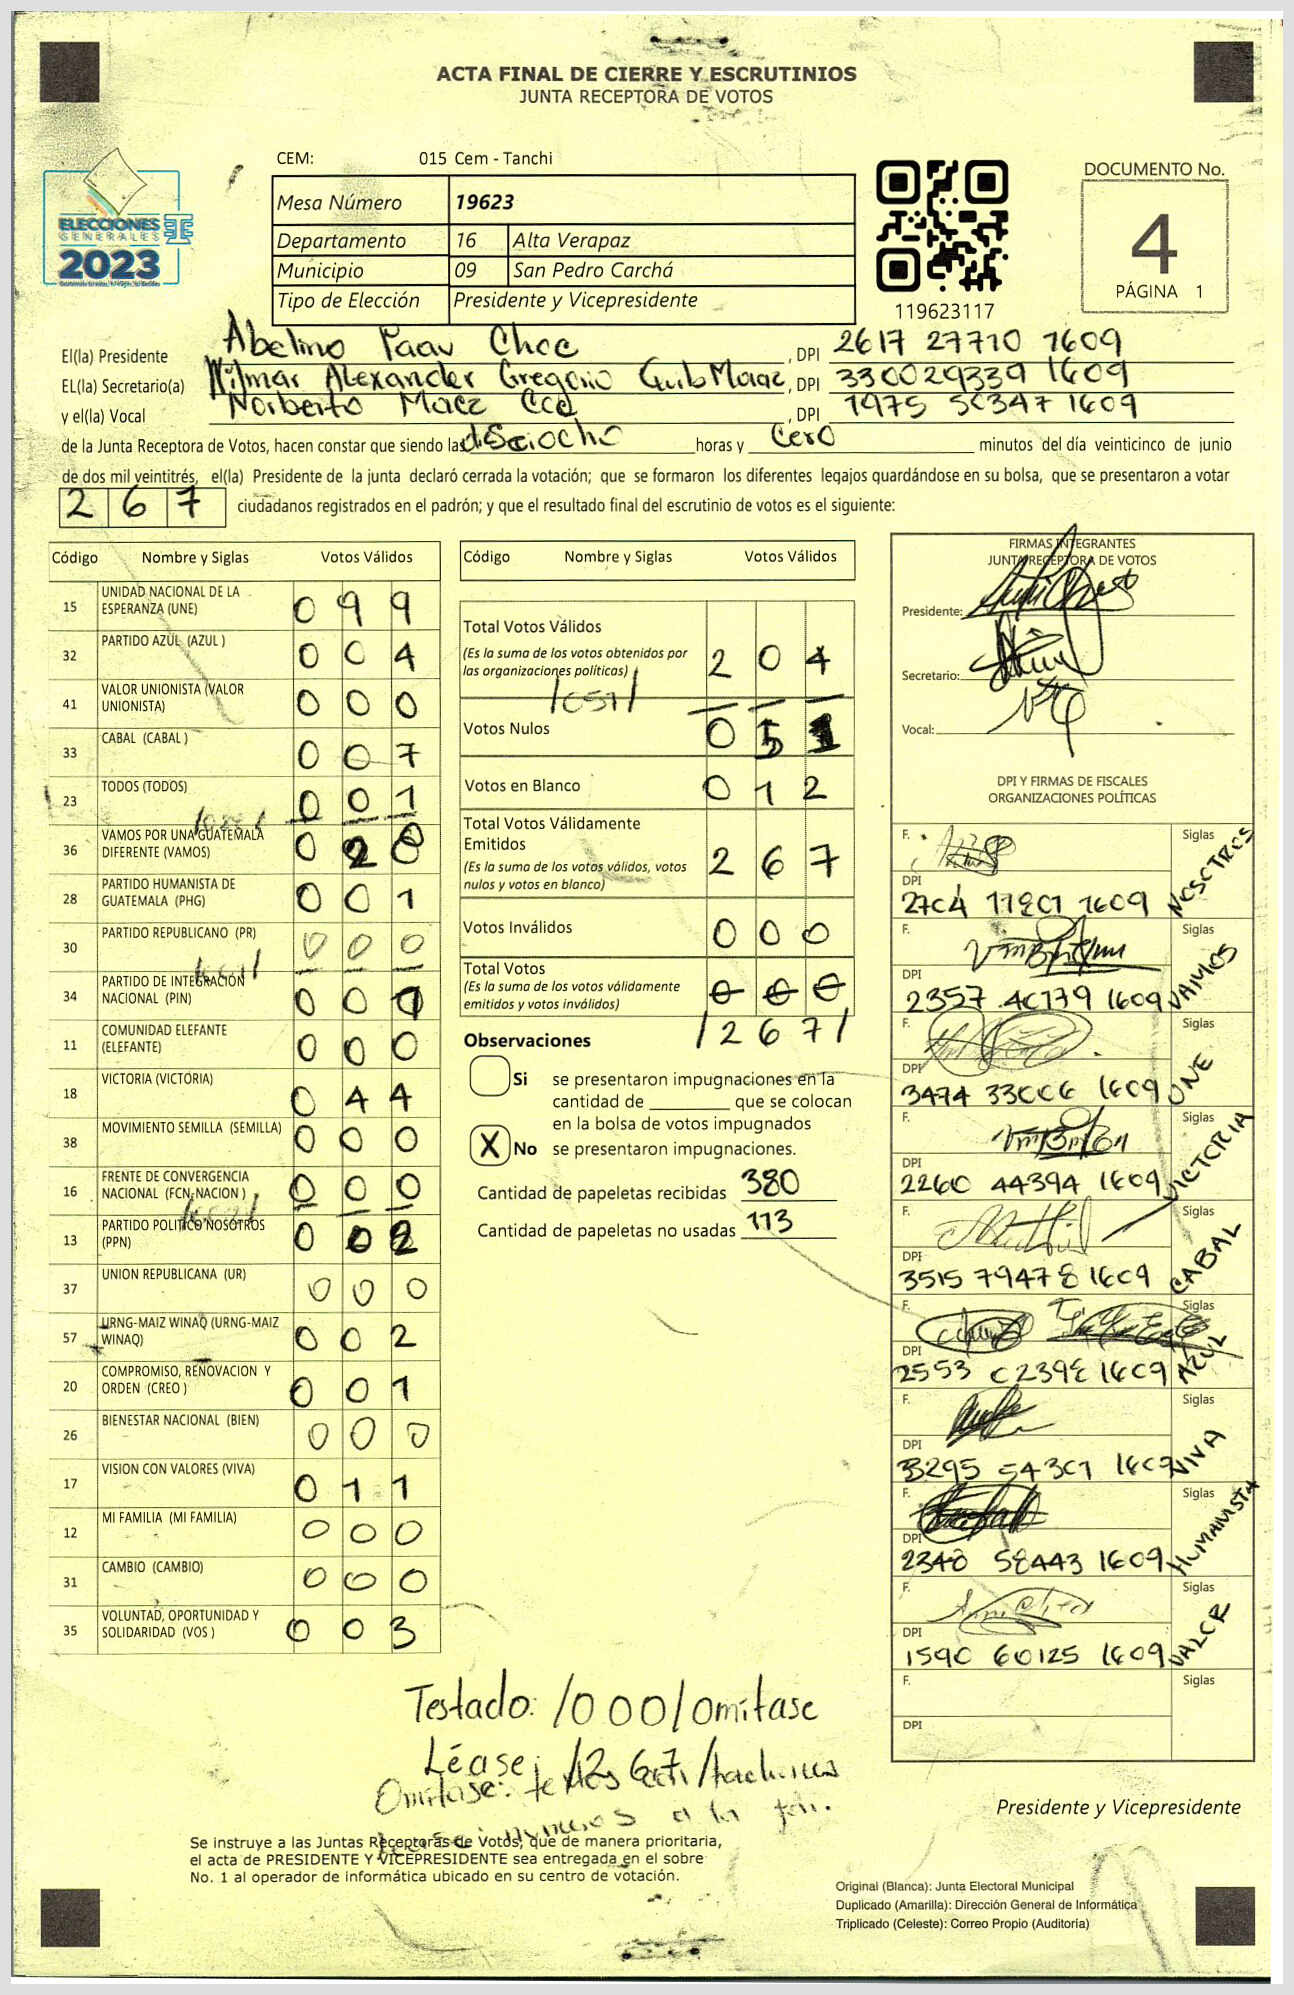 ACTA FINAL DE CIERRE Y ESCRUTINIOS
JUNTA RECEPTORA DE VOTOS
CEM: 015 Cem - Tanchi
Mesa Número 19623
Departamento 16 Alta Verapaz
Municipio 09 San Pedro Carchá
Tipo de Elección Presidente y Vicepresidente
ELECCIONES
GENERALES
2023
119623117
DOCUMENTO No.
4
PÁGINA 1
El(la) Presidente Abelino Paau Choc, DPI 2617 27710 1609
EL(la) Secretario(a) Wilmar Alexander Gregorio Maaz, DPI 330029339 1609
y el(la) Vocal Norberto Maez, DPI 1975 50347 1609
de la Junta Receptora de Votos, hacen constar que siendo las horas y Cero minutos del día veinticinco de junio
de dos mil veintitrés, el(la) Presidente de la junta declaró cerrada la votación; que se formaron los diferentes legajos guardándose en su bolsa, que se presentaron a votar
267 ciudadanos registrados en el padrón; y que el resultado final del escrutinio de votos es el siguiente:
Código Nombre y Siglas Votos Válidos
15 UNIDAD NACIONAL DE LA ESPERANZA (UNE) 099
32 PARTIDO AZUL (AZUL ) 004
41 VALOR UNIONISTA (VALOR UNIONISTA) 000
33 CABAL (CABAL ) 007
23 TODOS (TODOS) 001
36 VAMOS POR UNA GUATEMALA DIFERENTE (VAMOS) 028
28 PARTIDO HUMANISTA DE GUATEMALA (PHG) 001
30 PARTIDO REPUBLICANO (PR) 000
34 PARTIDO DE INTEGRACIÓN NACIONAL (PIN) 001
11 COMUNIDAD ELEFANTE (ELEFANTE) 000
18 VICTORIA (VICTORIA) 044
38 MOVIMIENTO SEMILLA (SEMILLA) 000
16 FRENTE DE CONVERGENCIA NACIONAL (FCN-NACION ) 000
13 PARTIDO POLITICO NOSOTROS (PPN) 002
37 UNION REPUBLICANA (UR) 000
57 URNG-MAIZ WINAQ (URNG-MAIZ WINAQ) 002
20 COMPROMISO, RENOVACION Y ORDEN (CREO ) 001
26 BIENESTAR NACIONAL (BIEN) 000
17 VISION CON VALORES (VIVA) 011
12 MI FAMILIA (MI FAMILIA) 000
31 CAMBIO (CAMBIO) 000
35 VOLUNTAD, OPORTUNIDAD Y SOLIDARIDAD (VOS ) 003
Código Nombre y Siglas Votos Válidos
Total Votos Válidos 204
(Es la suma de los votos obtenidos por
las organizaciones políticas)
/051/
Votos Nulos 051
Votos en Blanco 012
Total Votos Válidamente
Emitidos 267
(Es la suma de los votos válidos, votos
nulos y votos en blanco)
Votos Inválidos 000
Total Votos 000
(Es la suma de los votos válidamente
emitidos y votos inválidos)
/267/
Observaciones
Si se presentaron impugnaciones en la
cantidad de ________ que se colocan
en la bolsa de votos impugnados
X No se presentaron impugnaciones.
Cantidad de papeletas recibidas 380
Cantidad de papeletas no usadas 113
FIRMAS INTEGRANTES
JUNTA RECEPTORA DE VOTOS
Presidente:
Secretario:
Vocal:
DPI Y FIRMAS DE FISCALES
ORGANIZACIONES POLÍTICAS
F. Siglas NOSOTROS
DPI 2704 17801 1609
F. Siglas VAMOS
DPI 2357 40179 1609
F. Siglas UNE
DPI 3474 33006 1609
F. Siglas VICTORIA
DPI 2260 44394 1609
F. Siglas CABAL
DPI 3515 79478 1609
F. Siglas AZUL
DPI 2553 02398 1609
F. Siglas VIVA
DPI 3295 54301 1609
F. Siglas HUMANISTA
DPI 2348 58443 1609
F. Siglas VALOR
DPI 1590 60125 1609
F. Siglas
DPI
Testado: /000/ Omitase
Léase: /267/
Omitase:
Presidente y Vicepresidente
Se instruye a las Juntas Receptoras de Votos, que de manera prioritaria,
el acta de PRESIDENTE Y VICEPRESIDENTE sea entregada en el sobre
No. 1 al operador de informática ubicado en su centro de votación.
Original (Blanca): Junta Electoral Municipal
Duplicado (Amarilla): Dirección General de Informática
Triplicado (Celeste): Correo Propio (Auditoría)